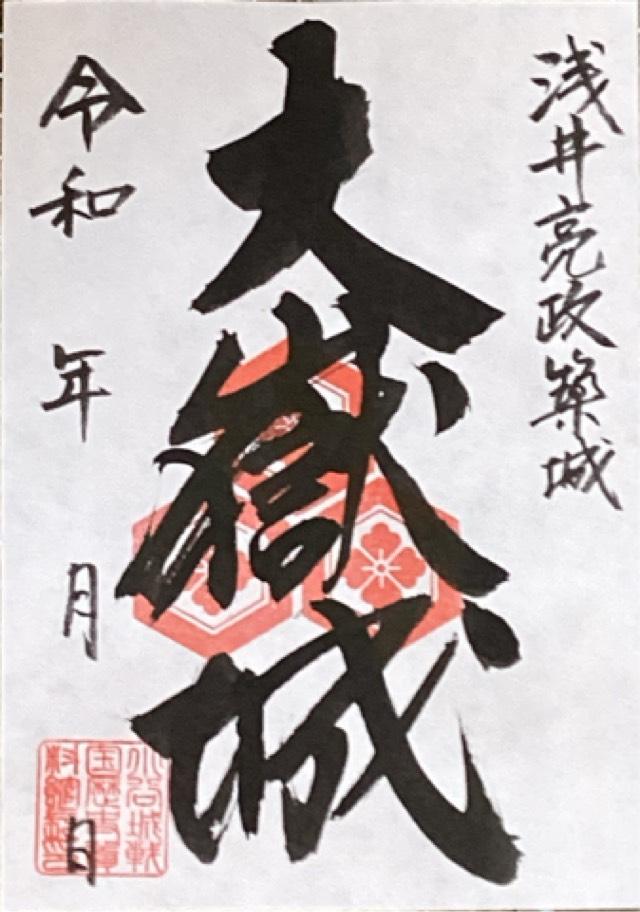 浅井亮政築城
大嶽城
令和 年 月 日
小谷城戦
国歴史資
料館之印